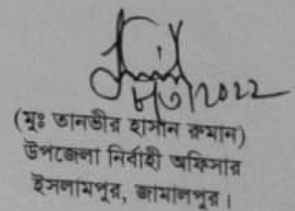 ২০২২
(মুঃ তানভীর হাসান রুমান)
উপজেলা নির্বাহী অফিসার
ইসলামপুর, জামালপুর।